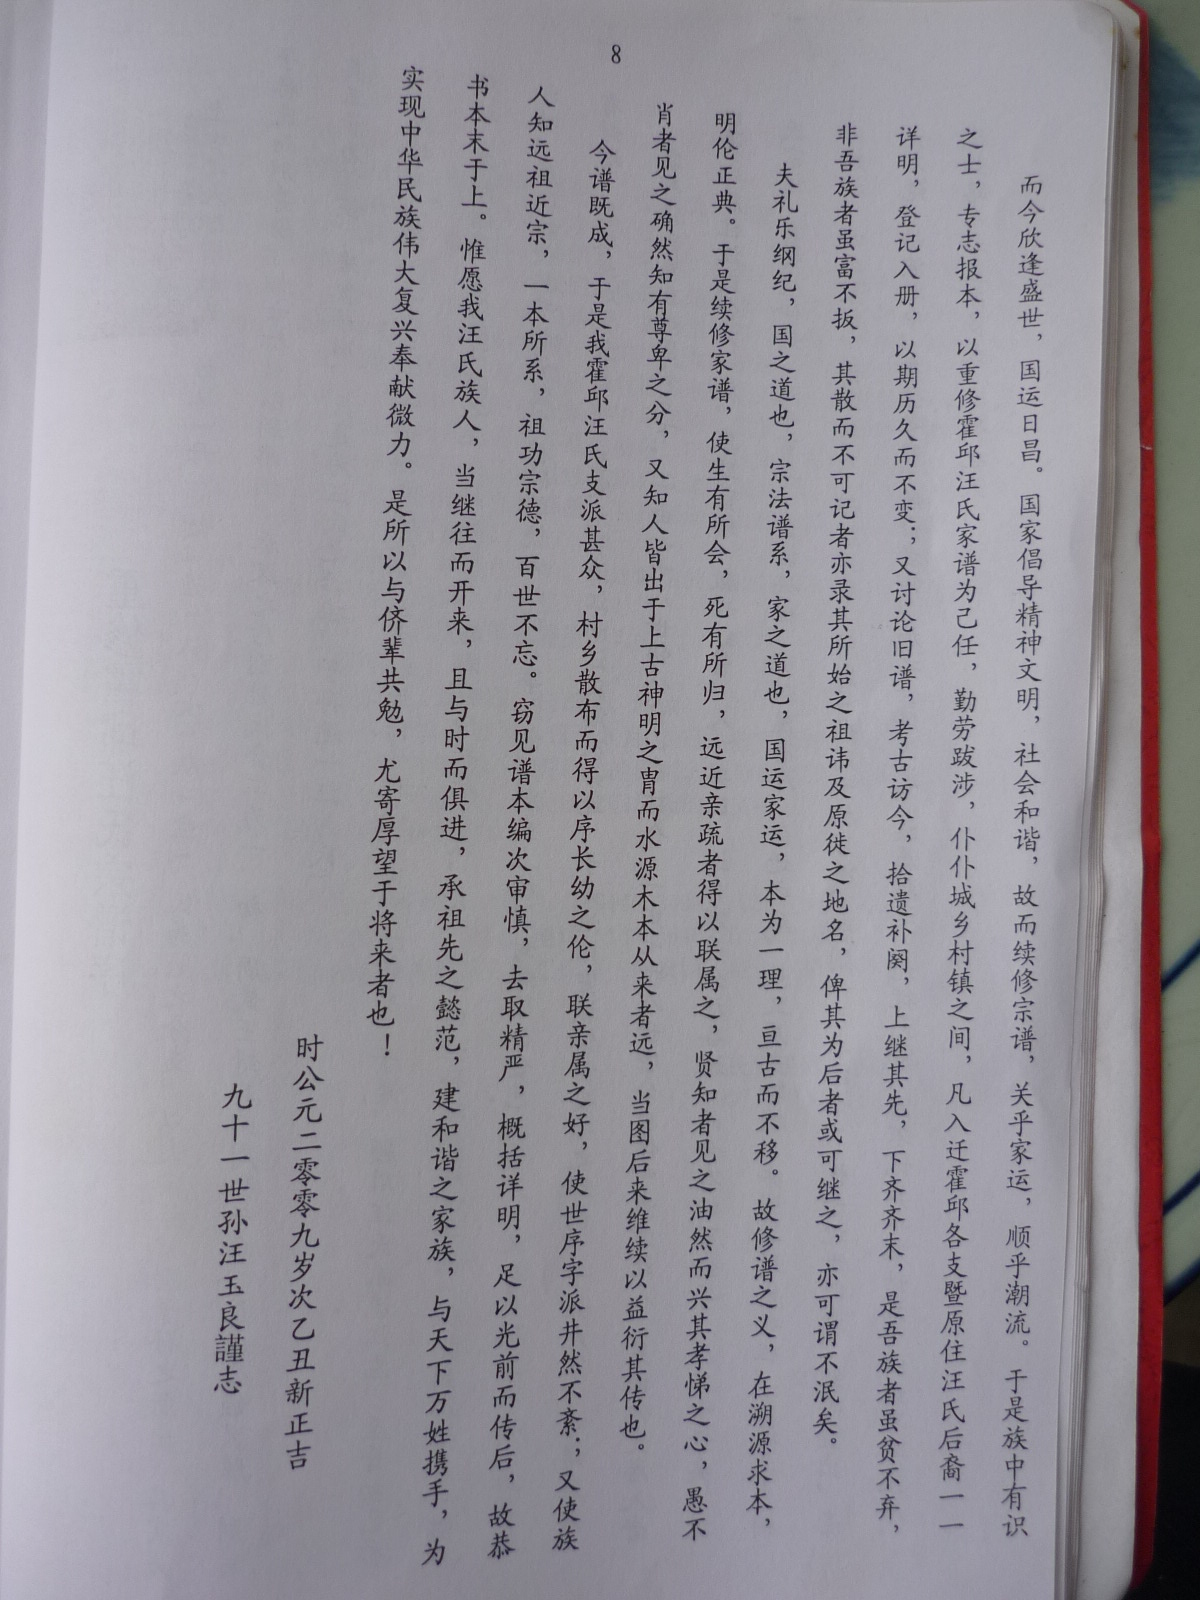 8
而今欣逢盛世，国运日昌。国家倡导精神文明，社会和谐，故而续修宗谱，关乎家运，顺乎潮流。于是族中有识
之士，专志报本，以重修霍邱汪氏家谱为己任，勤劳跋涉，仆仆城乡村镇之间，凡入迁霍邱各支暨原住汪氏后裔一一
详明，登记入册，以期历久而不变；又讨论旧谱，考古访今，拾遗补阕，上继其先，下齐齐末，是吾族者虽贫不弃，
非吾族者虽富不扳，其散而不可记者亦录其所始之祖讳及原徙之地名，俾其为后者或可继之，亦可谓不泯矣。
夫礼乐纲纪，国之道也，宗法谱系，家之道也，国运家运，本为一理，亘古而不移。故修谱之义，在溯源求本，
明伦正典。于是续修家谱，使生有所会，死有所归，远近亲疏者得以联属之，贤知者见之油然而兴其孝悌之心，愚不
肖者见之确然知有尊卑之分，又知人皆出于上古神明之胄而水源木本从来者远，当图后来维续以益衍其传也。
今谱既成，于是我霍邱汪氏支派甚众，村乡散布而得以序长幼之伦，联亲属之好，使世序字派井然不紊；又使族
人知远祖近宗，一本所系，祖功宗德，百世不忘。窃见谱本编次审慎，去取精严，概括详明，足以光前而传后，故恭
书本末于上。惟愿我汪氏族人，当继往而开来，且与时而俱进，承祖先之懿范，建和谐之家族，与天下万姓携手，为
实现中华民族伟大复兴奉献微力。是所以与侪辈共勉，尤寄厚望于将来者也！
时公元二零零九岁次乙丑新正吉
九十一世孙汪玉良謹志